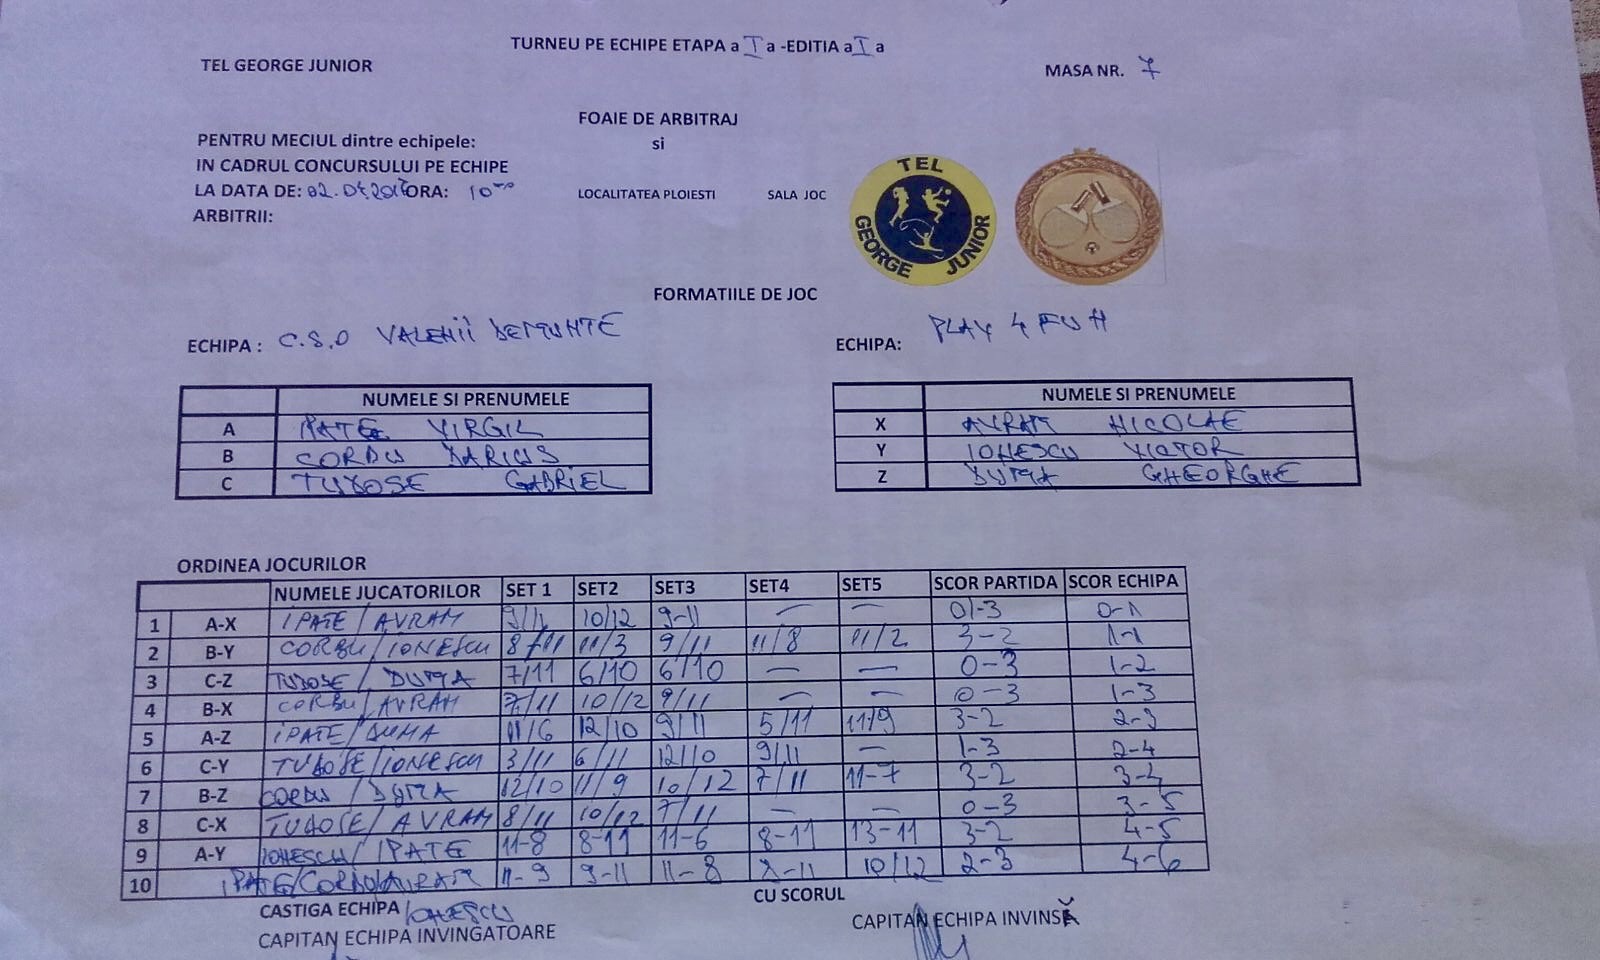 TURNEU PE ECHIPE ETAPA a I a -EDITIA a I a
TEL GEORGE JUNIOR
MASA NR. 7
FOAIE DE ARBITRAJ
PENTRU MECIUL dintre echipele: si
IN CADRUL CONCURSULUI PE ECHIPE
LA DATA DE: ORA: 10 LOCALITATEA PLOIESTI SALA JOC
ARBITRII:
TEL GEORGE JUNIOR
FORMATIILE DE JOC
ECHIPA : C.S.O VALENII DEMUNTE ECHIPA: PLAY 4 FUN
NUMELE SI PRENUMELE NUMELE SI PRENUMELE
A IPATE VIRGIL X AVRAM NICOLAE
B CORBU DARIUS Y IONESCU VICTOR
C TUDOSE GABRIEL Z DUMA GHEORGHE
ORDINEA JOCURILOR
NUMELE JUCATORILOR SET 1 SET2 SET3 SET4 SET5 SCOR PARTIDA SCOR ECHIPA
1 A-X IPATE/AVRAM 9/11 10/12 9-11 — — 0-3 0-1
2 B-Y CORBU/IONESCU 8/11 11/3 9/11 11/8 11/2 3-2 1-1
3 C-Z TUDOSE/DUMA 7/11 6/10 6/10 — — 0-3 1-2
4 B-X CORBU/AVRAM 7/11 10/12 9/11 — — 0-3 1-3
5 A-Z IPATE/DUMA 11/6 12/10 9/11 5/11 11/9 3-2 2-3
6 C-Y TUDOSE/IONESCU 3/11 6/11 12/10 9/11 — 1-3 2-4
7 B-Z CORBU/DUMA 12/10 11/9 10/12 7/11 11-7 3-2 3-4
8 C-X TUDOSE/AVRAM 8/11 10/12 7/11 — — 0-3 3-5
9 A-Y IONESCU/IPATE 11-8 8-11 11-6 8-11 13-11 3-2 4-5
10 IPATE/CORBU/AVRAM 11-9 9-11 11-8 8-11 10/12 2-3 4-6
CASTIGA ECHIPA /IONESCU CU SCORUL
CAPITAN ECHIPA INVINGATOARE CAPITAN ECHIPA INVINSĂ